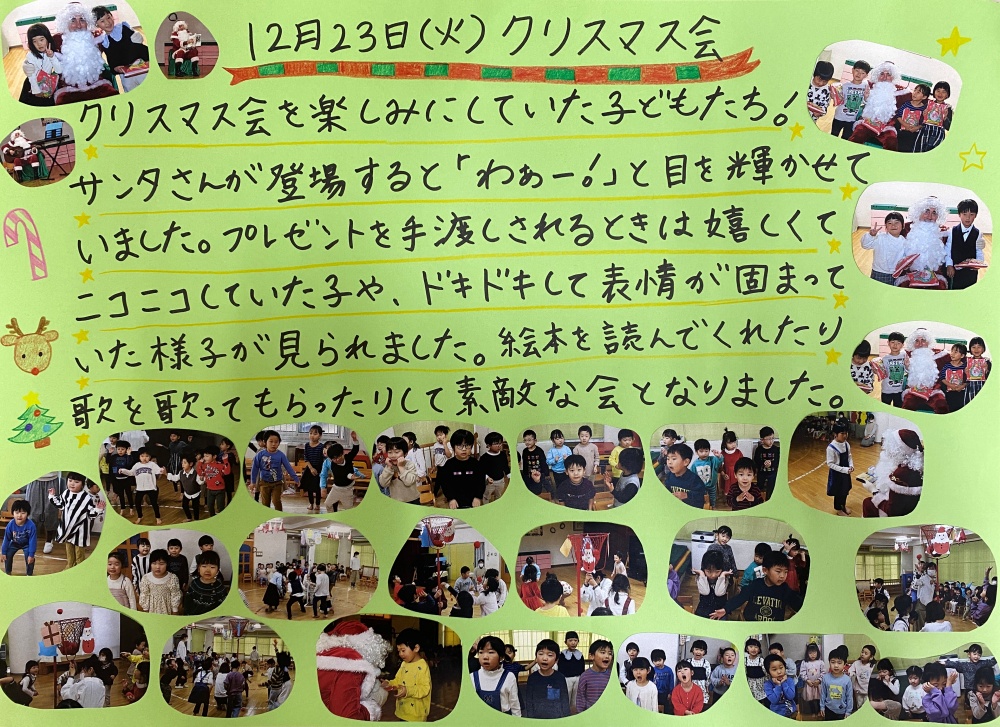 12月23日(火)クリスマス会
クリスマス会を楽しみにしていた子どもたち!
サンタさんが登場すると「わぁー!」と目を輝かせて
いました。プレゼントを手渡しされるときは嬉しくて
ニコニコしていた子や、ドキドキして表情が固まって
いた様子が見られました。絵本を読んでくれたり
歌を歌ってもらったりして素敵な会となりました。